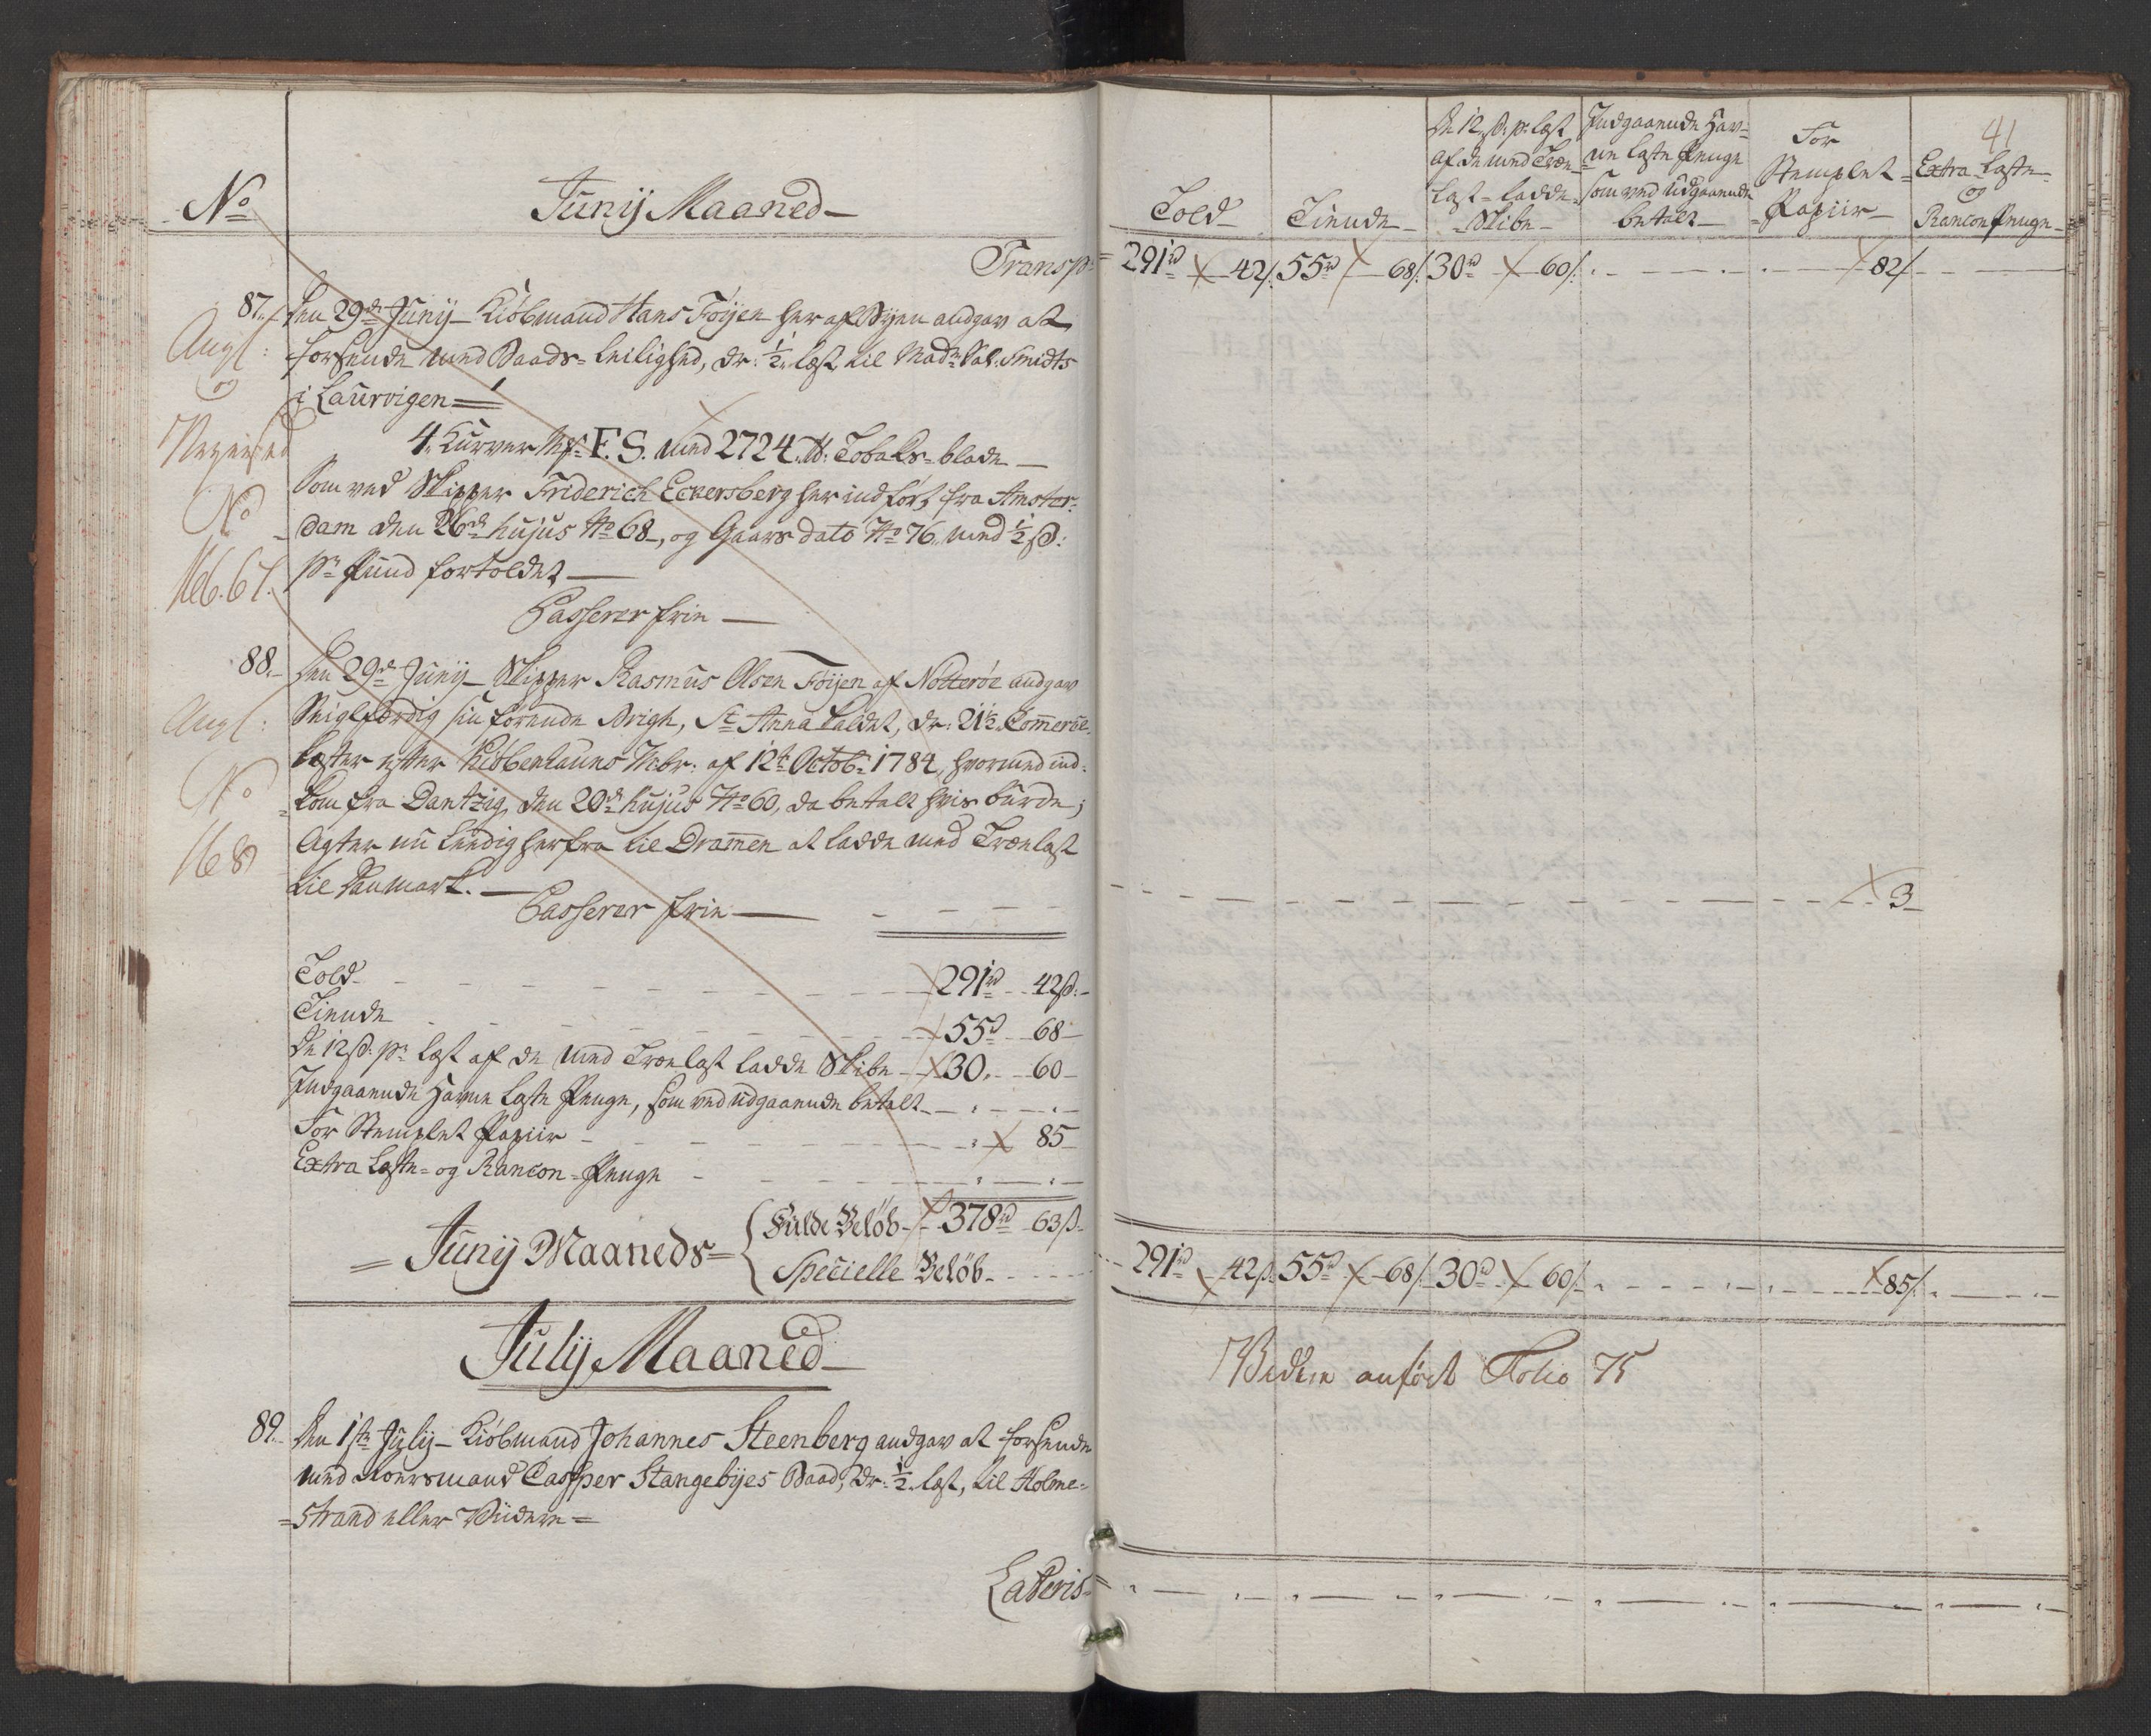 No
Junij Maaned
Transp:
87.
Den 29de Junij Kiöbmand Hans Föijen her af Byen andgav at
forsende med Baads-Leilighed, dr: ½ Læst, til Madme Sal: Smidts
i Laurvigen
4 Kurver Mk: F. S. med 2724 lb: Tobaks-blade
Angl:
og
No
166. 67.
Som ved Skipper Friderich Eckersberg her indfört fra Amster-
dam den 26de hujus No 68, og Gaars dato No 76 med ½ ß:
pr Pund fortoldet
Passerer frie
88.
Angl:
No
168
Den 29de Junij Skipper Rasmus Olsen Föijen af Nötteröe andgav
Seiglfærdig sin förende Brigh, St Anna kaldet, dr: 21½ Commerce
Læster efter Kiöbenhauns Mbr: af 12te Octob: 1784, hvormed ind-
kom fra Dantzig, den 20de hujus No 60, da betalt hvis burde;
Agter nu leedig herfra til Drammen at ladde med Trælast
til Danmark.
Passerer frie
Told 291rd 42ß:
Tiende 55rd 68
De 12ß: pr Læst af de med Trælast ladde Skibe 30. 60
Indgaaende Havne Læste Penge, som ved udgaaende betalt
For Stemplet Papiir 85
Extra Læste- og Rancon-Penge
Junij Maaneds
Fulde Belöb 378rd 63ß
Specielle Belöb
Julij Maaned
89.
Den 1ste Julij Kiöbmand Johannes Steenberg andgav at forsende
med Casper Stangebijes Baad, dr: ½ Læst, til Holme-
strand eller Viidere
Lateris
41
Told
Tiende
De 12 ß: pr: Læst
af de med Træe-
last-ladde
Skibe
Indgaaende Hav-
ne Læste Penge
som ved udgaaende
betalt
For
Stemplet
Papiir
Extra Læste
og
Rancon Penge
291rd 42ß. 55rd 68ß. 30rd 60ß. 82ß
3
291rd 42ß. 55rd 68ß. 30rd 60ß. 85ß.
anfört Folio 75